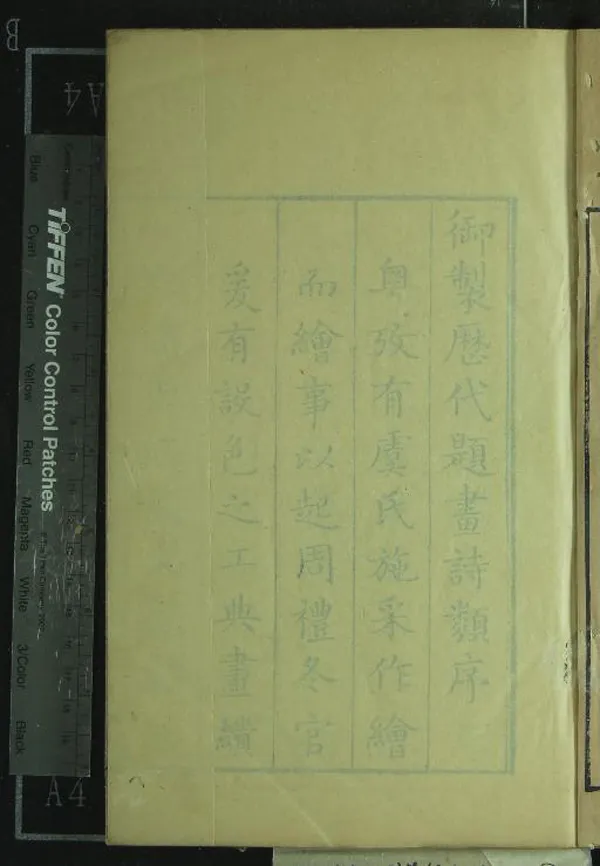 御製歷代題畫詩類序
粤攷有虞氏施采作繪
而繪事以起周禮冬官
爰有設色之工典畫繢
TIFFEN® Color Control Patches
Blue
Cyan
Green
Yellow
Red
Magenta
White
3/Color
Black
A4
A4
B